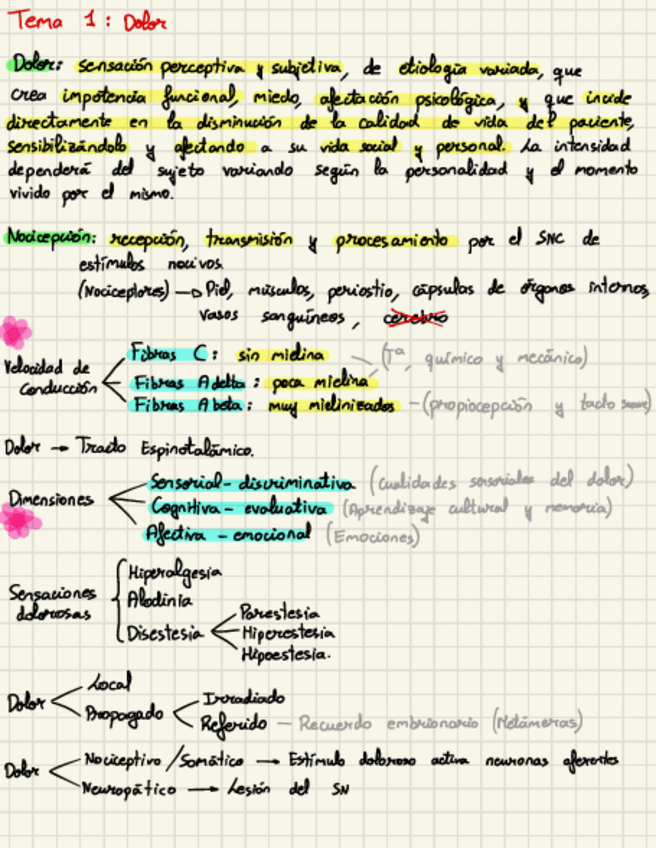 Tema 1: Dolor
Dolor: sensación perceptiva y subjetiva, de etiología variada, que
crea impotencia funcional, miedo, afectación psicológica, y que incide
directamente en la disminución de la calidad de vida del paciente,
sensibilizándolo y afectando a su vida social y personal. La intensidad
dependerá del sujeto variando según la personalidad y el momento
vivido por el mismo.
Nocicepción: recepción, transmisión y procesamiento por el SNC de
estímulos nocivos.
(Nociceptores) → Piel, músculos, periostio, cápsulas de órganos internos,
vasos sanguíneos, cerebro
Velocidad de Conducción
Fibras C: sin mielina
Fibras A delta: poca mielina
(Tª, químico y mecánico)
Fibras A beta: muy mielinizados - (propiocepción y tacto suave)
Dolor → Tracto Espinotalámico.
Dimensiones
Sensorial-discriminativa (Cualidades sensoriales del dolor)
Cognitiva-evaluativa (Aprendizaje cultural y memoria)
Afectiva-emocional (Emociones)
Sensaciones dolorosas
Hiperalgesia
Alodinia
Disestesia
Parestesia
Hiperestesia
Hipoestesia.
Dolor
Local
Propagado
Irradiado
Referido - Recuerdo embrionario (Metámeras)
Dolor
Nociceptivo/Somático → Estímulo doloroso activa neuronas aferentes
Neuropático → Lesión del SN